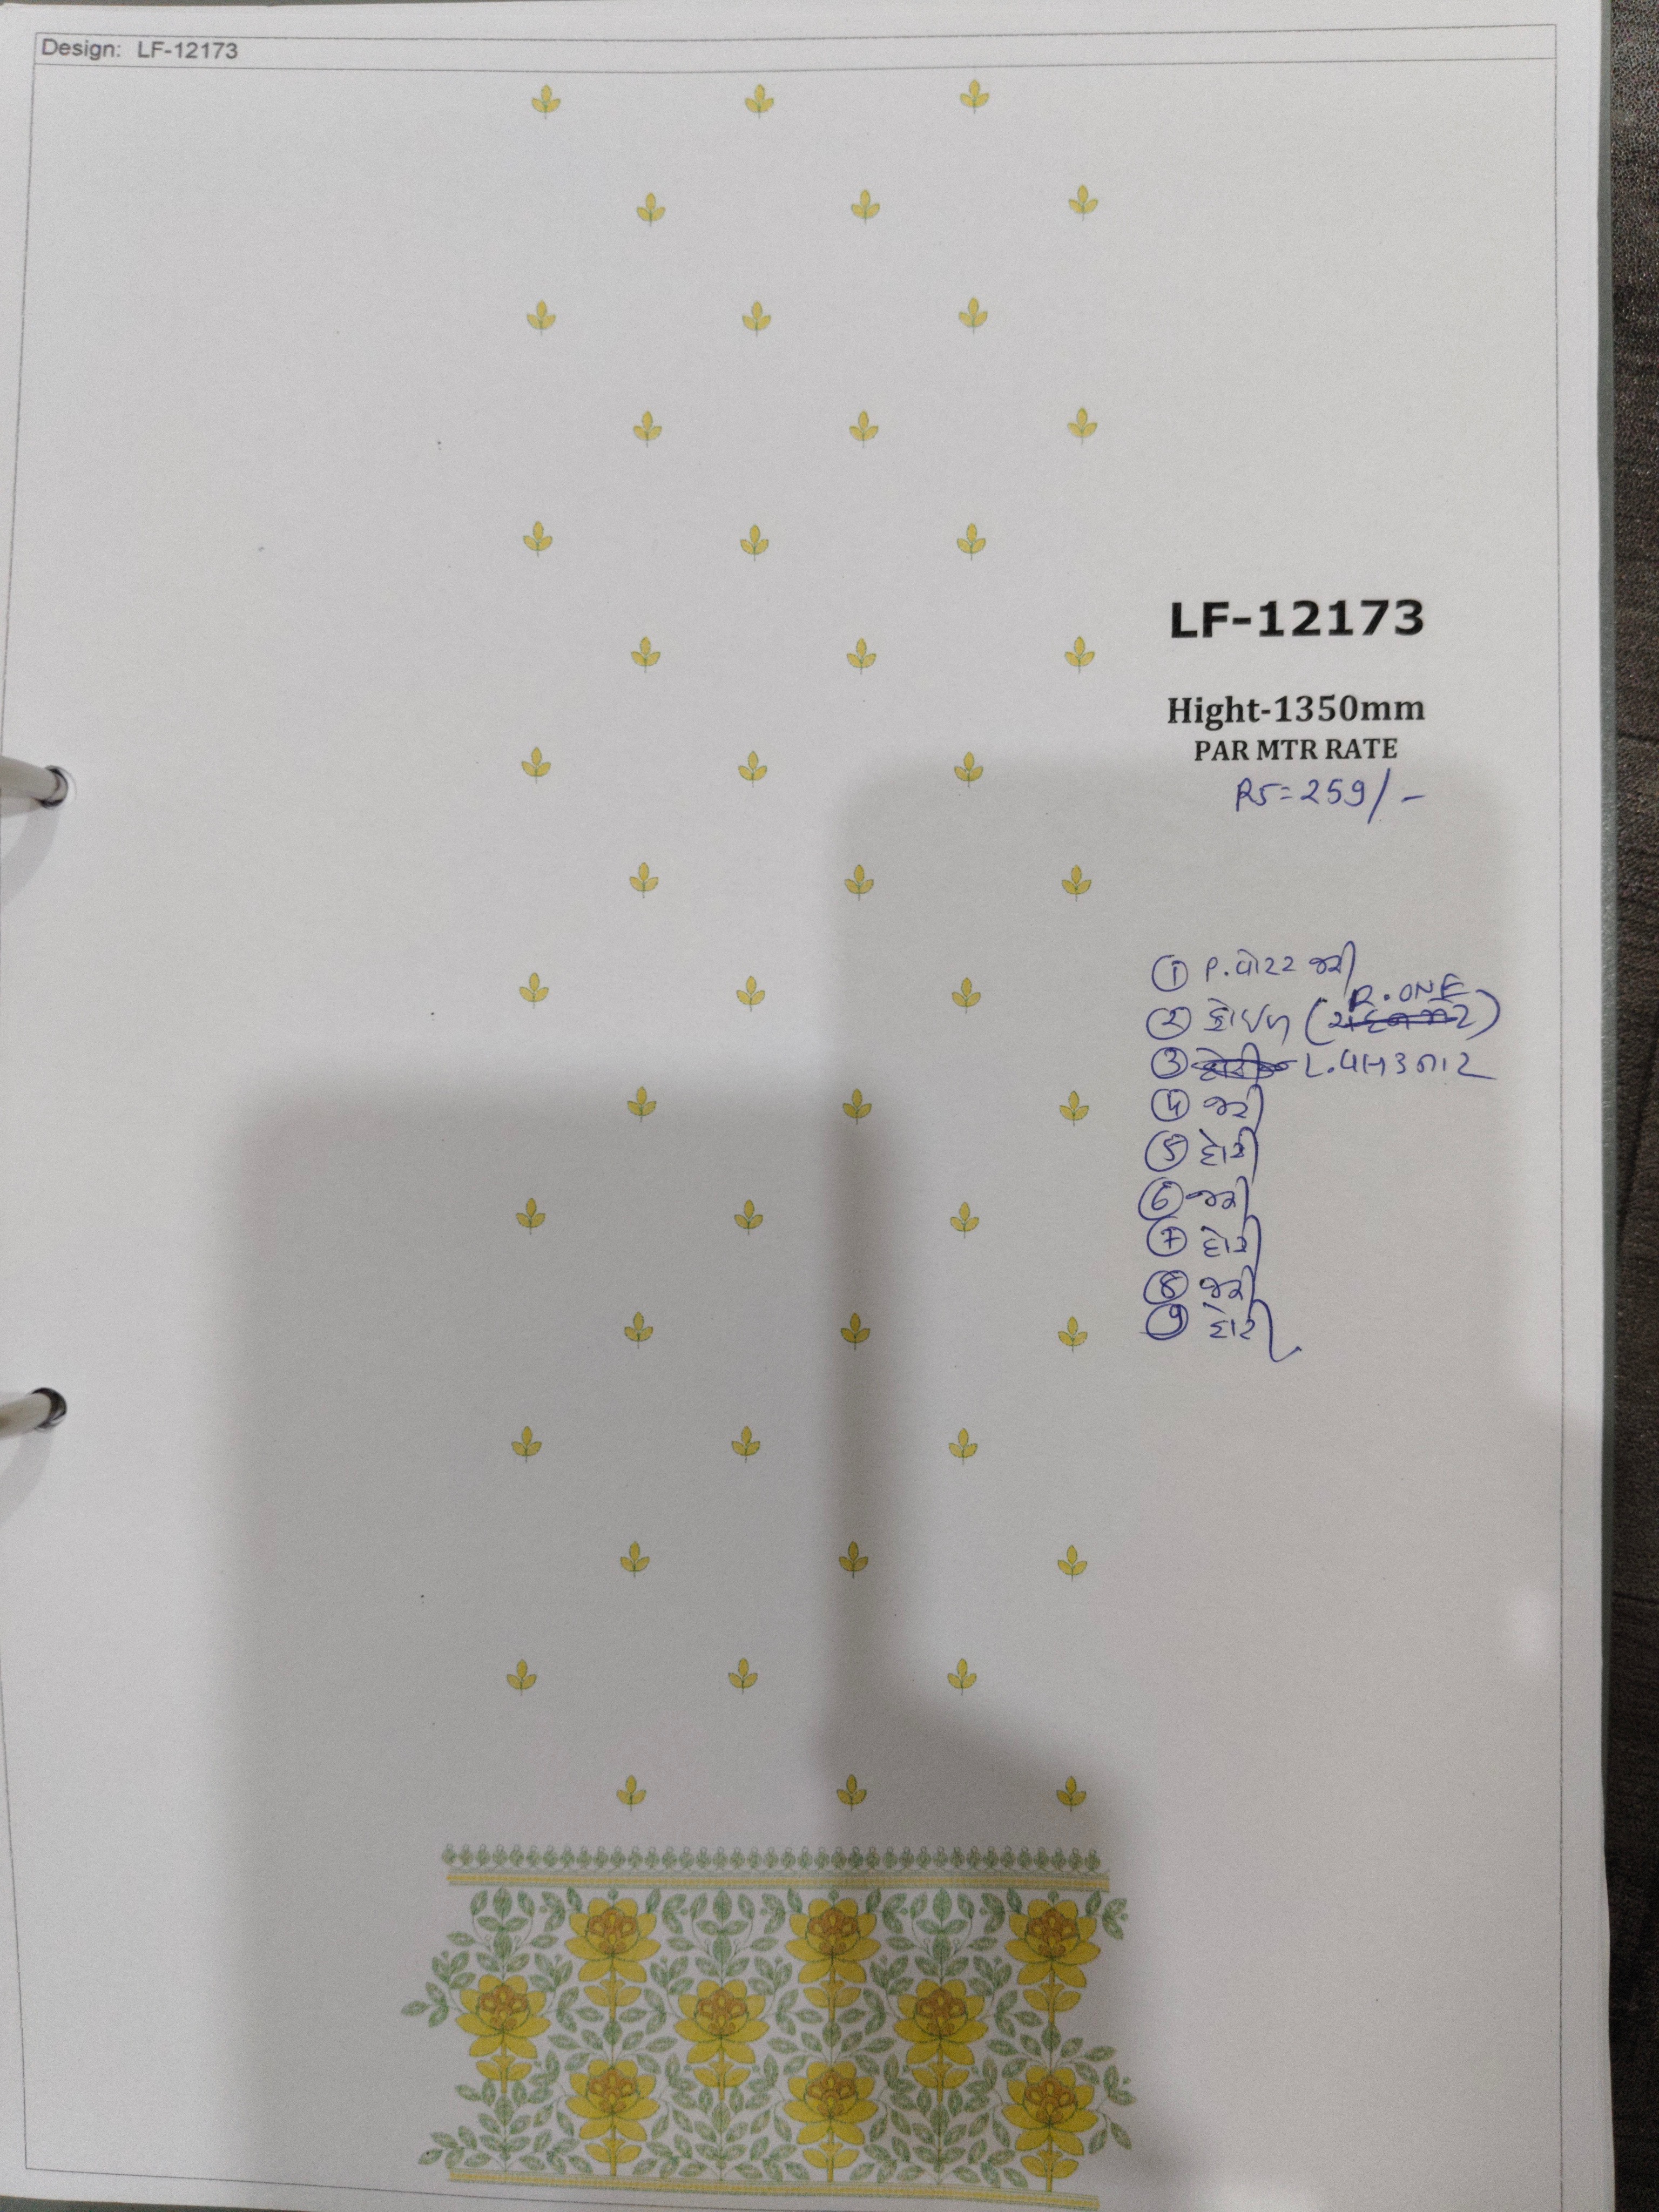 Design: LF-12173
LF-12173
Hight-1350mm
PAR MTR RATE
RS=259/-
① P.વોટર જરી
② કોયળ (R.ONE)
③ L.
④ જરી
⑤ દોરી
⑥ જરી
⑦ દોરી
⑧ જરી
⑨ દોરી